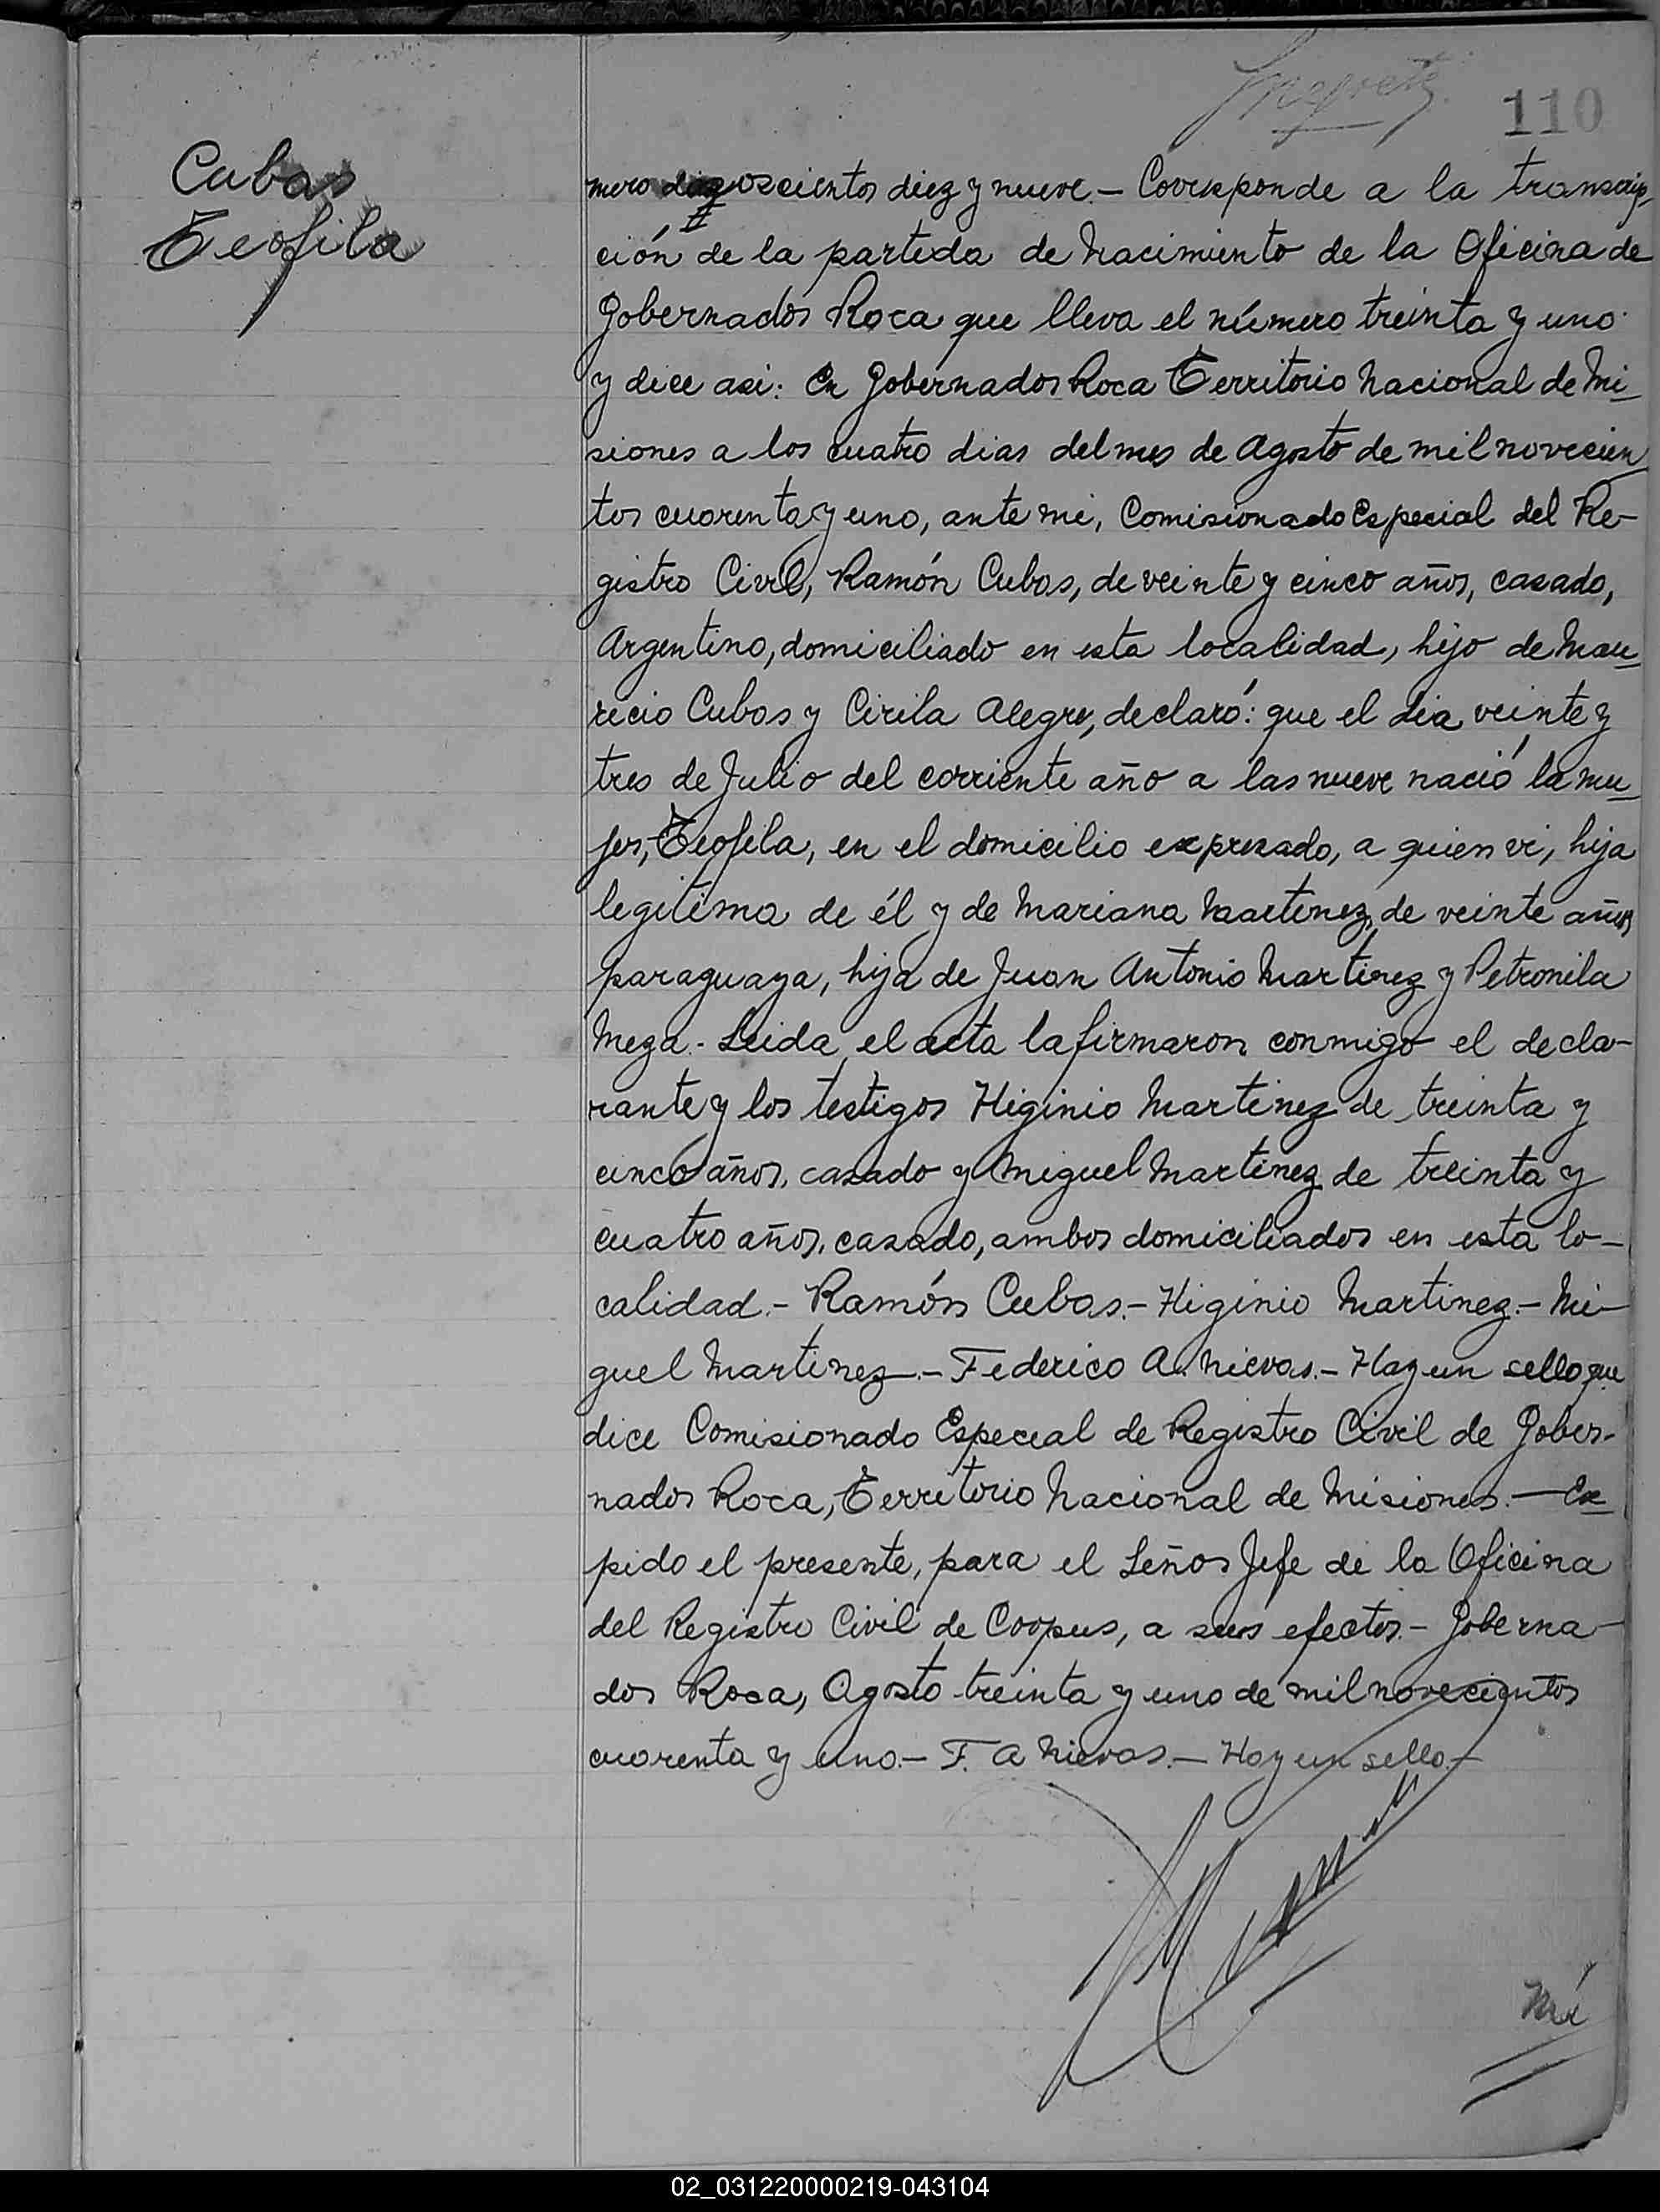 110
Cubas
Teofila
mero doscientos diez y nueve.- Corresponde a la transcrip-
ción de la partida de Nacimiento de la Oficina de
Gobernador Roca que lleva el número treinta y uno
y dice asi: En Gobernador Roca Territorio Nacional de Mi-
siones a los cuatro dias del mes de Agosto de mil novecien
tos cuarenta y uno, ante mi, Comisionado Especial del Re-
gistro Civil, Ramón Cubas, de veinte y cinco años, casado,
Argentino, domiciliado en esta localidad, hijo de Mau-
ricio Cubas y Cirila Alegre, declaró: que el dia veinte y
tres de Julio del corriente año a las nueve nació la mu-
jer, Teofila, en el domicilio expresado, a quien vi, hija
legitima de él y de Mariana Martinez, de veinte años
paraguaya, hija de Juan Antonio Martinez y Petronila
Meza.- Leida el acta la firmaron conmigo el decla-
rante y los testigos Higinio Martinez de treinta y
cinco años, casado y Miguel Martinez de treinta y
cuatro años, casado, ambos domiciliados en esta lo-
calidad.- Ramón Cubas.- Higinio Martinez.- Mi-
guel Martinez.- Federico A. Nievas.- Hay un sello que
dice Comisionado Especial de Registro Civil de Gober-
nador Roca, Territorio Nacional de Misiones.- Ex
pido el presente, para el Señor Jefe de la Oficina
del Registro Civil de Corpus, a sus efectos.- Goberna-
dor Roca, Agosto treinta y uno de mil novecientos
cuarenta y uno.- F. A Nievas.- Hay un sello.-
02_031220000219-043104